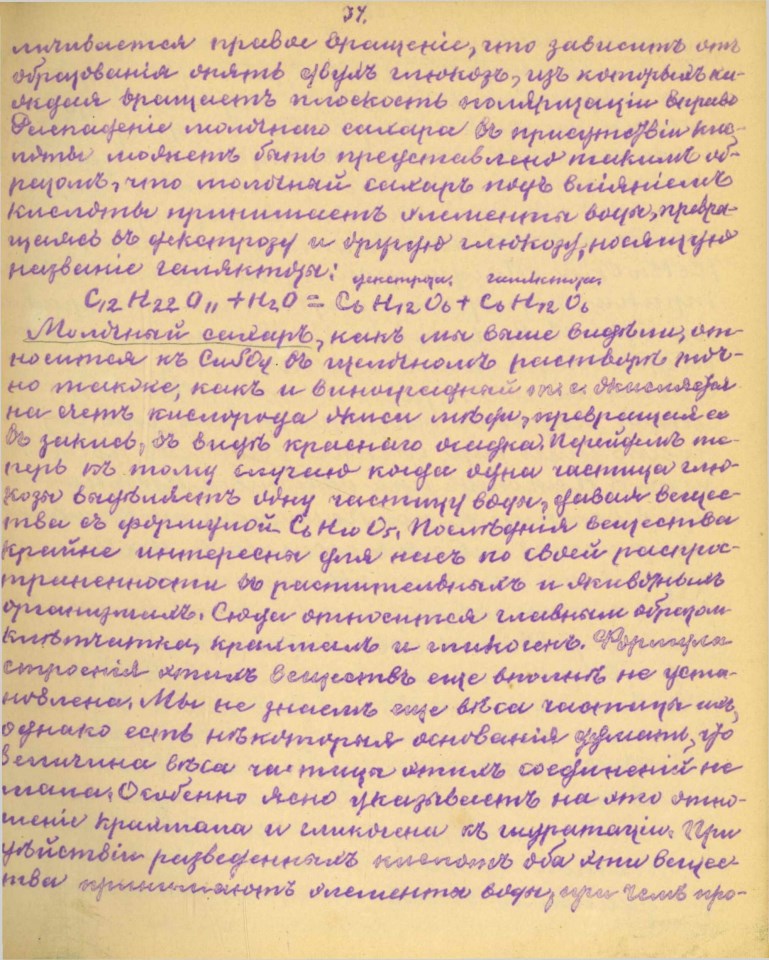 34.
личивается правое вращеніе, что зависитъ отъ
образованія опять двухъ глюкозъ, изъ которыхъ ка-
ждая вращаетъ плоскость поляризаціи вправо
Распаденіе молочнаго сахара въ присутствіи кис-
лоты можетъ быть представлено такимъ об-
разомъ, что молочный сахаръ подъ вліяніемъ
кислоты принимаетъ элементы воды, превра-
щаясь въ декстрозу и другую глюкозу, носящую
названіе галяктозы: декстроза. галяктоза.
C12 H22 O11 + H2O = C6 H12 O6 + C6 H12 O6
Молочный сахаръ, какъ мы выше видѣли, от-
носится къ CuSO4 въ щелочномъ растворѣ точ-
но также, какъ и виноградный окисляется
на счетъ кислорода окиси мѣди, превращая ее
въ закись, въ видѣ краснаго осадка. Перейдемъ те-
перь къ тому случаю когда одна частица глю-
козы выдѣляетъ одну частицу воды, давая вещес-
тва съ формулой C6 H10 O5. Послѣднія вещества
крайне интересны для насъ по своей распрос-
траненности въ растительныхъ и животныхъ
организмахъ. Сюда относится главнымъ образом
клѣтчатка, крахмалъ и гликогенъ. Формула
строенія этихъ веществъ еще вполнѣ не уста-
новлена. Мы не знаемъ еще вѣса частицы ихъ,
однако есть нѣкоторыя основанія думать, что
величина вѣса частицы этихъ соединеній не
мала. Особенно ясно указываетъ на это отно-
шеніе крахмала и гликогена къ гидратаціи. При
дѣйствіи разведенныхъ кислотъ оба эти вещес-
тва принимаютъ элементы воды, при чемъ про-